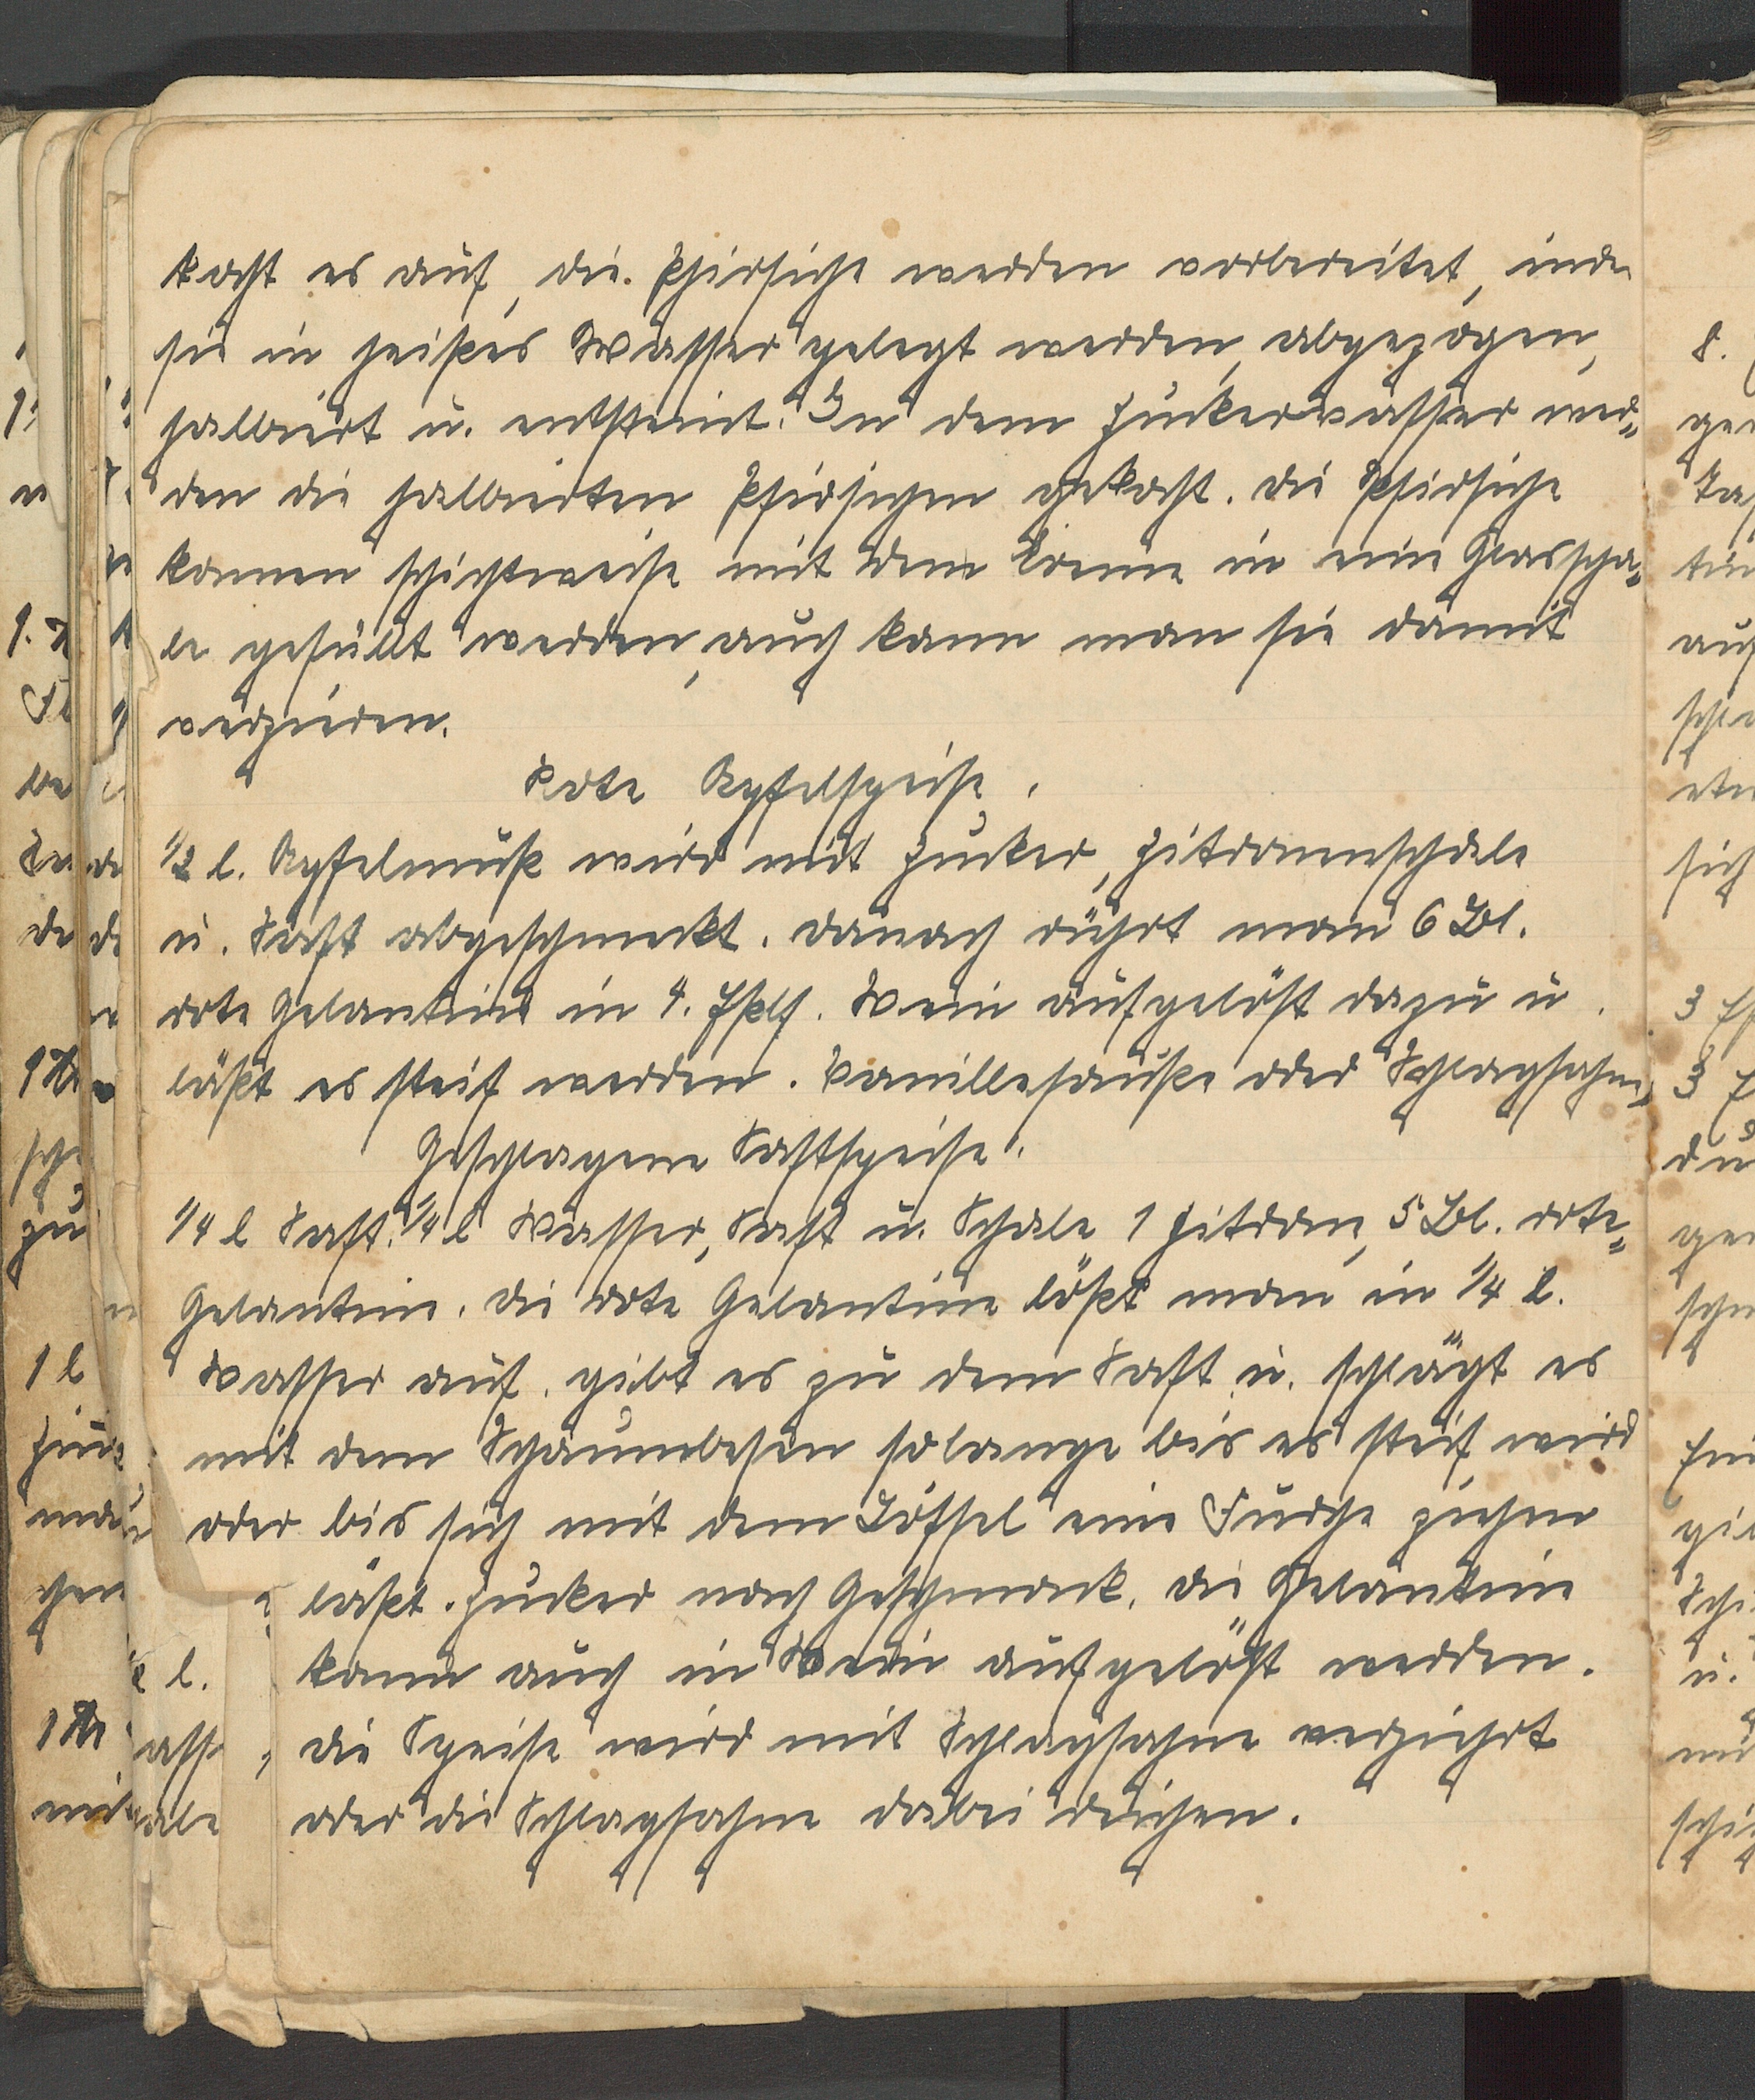 kocht es auf, die Pfirsiche werden vorbereitet, inde
sie in heißes Wasser gelegt werden, abgezogen,
halbiert u. entsteint. In dem Zuckerwasser wer=
den die halbierten Pfirsichen gekocht. Die Pfirsiche
können schichtweise mit dem Creme in eine Glasscha=
le gefüllt werden, auch kann man sie damit
verzieren.
Rote Apfelspeise.
1/2 l. Apfelmuß wird mit Zucker, Zitronenschale
u. Saft abgeschmeckt. Danach rührt man 6 Bl.
rote Gelantine in 4. Eßlf. Wein aufgelöst dazu u.
läßt es steif werden. Vanillesauße oder Schlagsahne,
Geschlagene Saftspeise.
1/4 l Saft. 1/4 l Wasser, Saft u. Schale 1 Zitrone, 5 Bl. rote=
Gelantine. Die rote Gelantine lößt man in 1/4 l.
Wasser auf, gibt es zu dem Saft u. schlägt es
mit dem Schaumbesen solange bis es steif wird
oder bis sich mit dem Löffel eine Furche ziehen
läßt. Zucker nach Geschmack. Die Gelantine
kann auch in Wein aufgelöst werden.
Die Speise wird mit Schlagsahne verziehrt
oder die Schlagsahne dabei reichen.